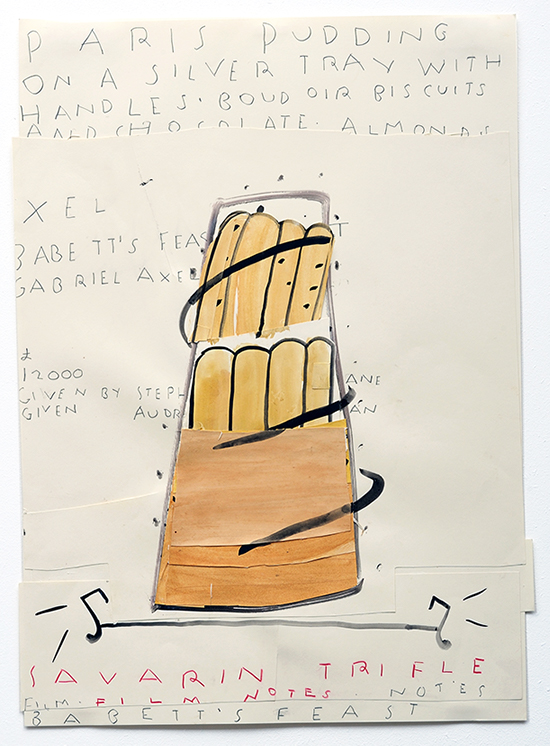 PARIS PUDDING
ON A SILVER TRAY WITH
HANDLES. BOUDOIR BISCUITS
AND CHOCOLATE. ALMONDS
XEL
BABETT'S FEAS T
GABRIEL AXEL
£
12000
GIVEN BY STEPH ANE
GIVEN AUDR AN
SAVARIN TRIFLE
FILM. FILM NOTES. NOTES
BABETT'S FEAST